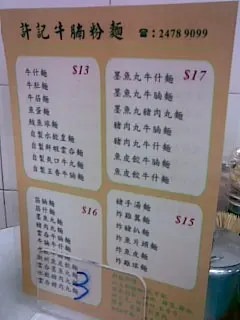 許記牛腩粉麵 ☎:2478 9099
$13
牛什麵
牛肚麵
牛筋麵
魚蛋麵
鯪魚球麵
自製水餃皇麵
自製鮮蝦雲吞麵
自製爽口牛丸麵
自製五香牛腩麵
$17
墨魚丸牛什麵
墨魚丸牛腩麵
墨魚丸豬肉丸麵
豬肉丸牛腩麵
豬肉丸牛什麵
魚皮餃牛腩麵
魚皮餃牛什麵
$16
筋腩麵
筋什麵
墨魚丸麵
豬肉丸麵
$15
豬手湯麵
炸雞翼麵
炸豬扒麵
炸魚片頭麵
炸魚皮麵
炸雞球麵
3